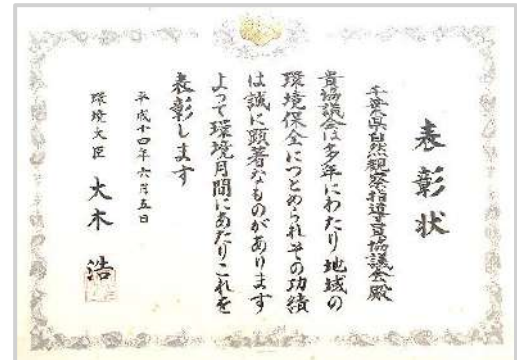 表彰状
千葉県自然観察指導員協議会殿
貴協議会は多年にわたり地域の
環境保全につとめられその功績
は誠に顕著なものがあります
よって環境月間にあたりこれを
表彰します
平成十四年六月五日
環境大臣 大木浩